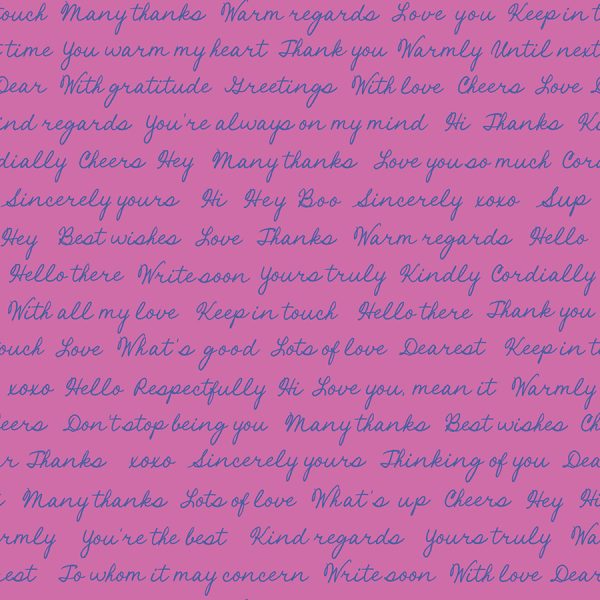 ouch Many thanks Warm regards Love you Keep in t
time You warm my heart Thank you Warmly Until next
Dear With gratitude Greetings With love Cheers Love D
ind regards You're always on my mind Hi Thanks Ki
dially Cheers Hey Many thanks Love you so much Cord
Sincerely yours Hi Hey Boo Sincerely xoxo Sup
Hey Best wishes Love Thanks Warm regards Hello
Hello there Write soon Yours truly Kindly Cordially
With all my love Keep in touch Hello there Thank you
ouch Love What's good Lots of love Dearest Keep in t
xoxo Hello Respectfully Hi Love you, mean it Warmly
eers Don't stop being you Many thanks Best wishes Ch
r Thanks xoxo Sincerely yours Thinking of you Dea
Many thanks Lots of love What's up Cheers Hey Hi
rmly You're the best Kind regards Yours truly Wa
rest To whom it may concern Write soon With love Dear